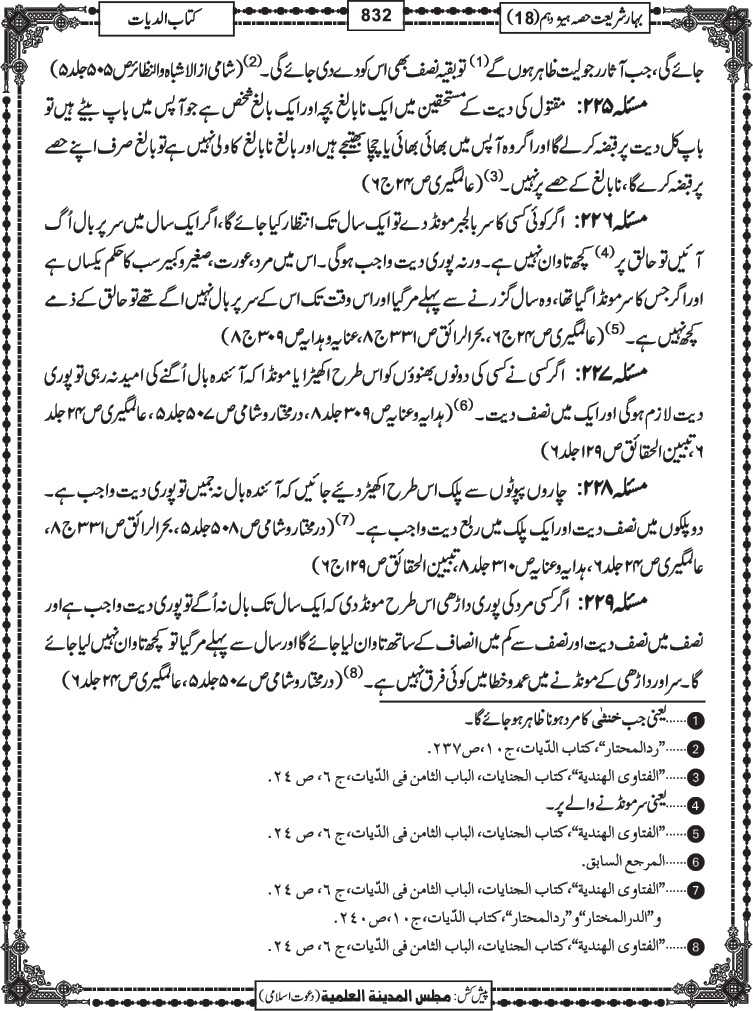 بہارِ شریعت حصہ ہیژدہم (18)
832
کتاب الدیات
جائے گی، جب آثار رجولیت ظاہر ہوں گے(1) تو بقیہ نصف بھی اس کو دے دی جائے گی۔(2) (شامی از الاشباہ والنظائر ص ۵۰۵ جلد ۵)
مسئلہ ۲۲۵: مقتول کی دیت کے مستحقین میں ایک نابالغ بچہ اور ایک بالغ شخص ہے جو آپس میں باپ بیٹے ہیں تو
باپ کل دیت پر قبضہ کرلے گا اور اگر وہ آپس میں بھائی بھائی یا چچا بھتیجے ہیں اور بالغ نابالغ کا ولی نہیں ہے تو بالغ صرف اپنے حصے
پر قبضہ کرے گا، نابالغ کے حصے پر نہیں۔(3) (عالمگیری ص ۲۴ ج ۶)
مسئلہ ۲۲۶: اگر کوئی کسی کا سر بالجبر مونڈ دے تو ایک سال تک انتظار کیا جائے گا، اگر ایک سال میں سر پر بال اُگ
آئیں تو حالق پر(4) کچھ تاوان نہیں ہے۔ ورنہ پوری دیت واجب ہوگی۔ اس میں مرد، عورت، صغیر و کبیر سب کا حکم یکساں ہے
اور اگر جس کا سر مونڈا گیا تھا، وہ سال گزرنے سے پہلے مرگیا اور اس وقت تک اس کے سر پر بال نہیں اگے تھے تو حالق کے ذمے
کچھ نہیں ہے۔(5) (عالمگیری ص ۲۴ ج ۶، بحرالرائق ص ۳۳۱ ج ۸، عنایہ و ہدایہ ص ۳۰۹ ج ۸)
مسئلہ ۲۲۷: اگر کسی نے کسی کی دونوں بھنوؤں کو اس طرح اکھیڑا یا مونڈا کہ آئندہ بال اُگنے کی امید نہ رہی تو پوری
دیت لازم ہوگی اور ایک میں نصف دیت۔(6) (ہدایہ و عنایہ ص ۳۰۹ جلد ۸، درمختار و شامی ص ۵۰۷ جلد ۵، عالمگیری ص ۲۴ جلد
۶، تبیین الحقائق ص ۱۲۹ جلد ۶)
مسئلہ ۲۲۸: چاروں پپوٹوں سے پلک اس طرح اکھیڑ دیئے جائیں کہ آئندہ بال نہ جمیں تو پوری دیت واجب ہے۔
دو پلکوں میں نصف دیت اور ایک پلک میں ربع دیت واجب ہے۔(7) (درمختار و شامی ص ۵۰۸ جلد ۵، بحرالرائق ص ۳۳۱ ج ۸،
عالمگیری ص ۲۴ جلد ۶، ہدایہ و عنایہ ص ۳۱۰ جلد ۸، تبیین الحقائق ص ۱۲۹ ج ۶)
مسئلہ ۲۲۹: اگر کسی مرد کی پوری داڑھی اس طرح مونڈ دی کہ ایک سال تک بال نہ اُگے تو پوری دیت واجب ہے اور
نصف میں نصف دیت اور نصف سے کم میں انصاف کے ساتھ تاوان لیا جائے گا اور سال سے پہلے مرگیا تو کچھ تاوان نہیں لیا جائے
گا۔ سر اور داڑھی کے مونڈنے میں عمد و خطا میں کوئی فرق نہیں ہے۔(8) (درمختار و شامی ص ۵۰۷ جلد ۵، عالمگیری ص ۲۴ جلد ۶)
1......یعنی جب خنثٰی کا مرد ہونا ظاہر ہو جائے گا۔
2......"ردالمحتار"، کتاب الدّیات، ج ۱۰، ص ۲۳۷.
3......"الفتاوی الھندیة"، کتاب الجنایات، الباب الثامن فی الدّیات، ج ۶، ص ۲۴.
4......یعنی سر مونڈنے والے پر۔
5......"الفتاوی الھندیة"، کتاب الجنایات، الباب الثامن فی الدّیات، ج ۶، ص ۲۴.
6......المرجع السابق.
7......"الفتاوی الھندیة"، کتاب الجنایات، الباب الثامن فی الدّیات، ج ۶، ص ۲۴.
و"الدرالمختار" و"ردالمحتار"، کتاب الدّیات، ج ۱۰، ص ۲۴۰.
8......"الفتاوی الھندیة"، کتاب الجنایات، الباب الثامن فی الدّیات، ج ۶، ص ۲۴.
پیش کش: مجلس المدینة العلمیة (دعوت اسلامی)